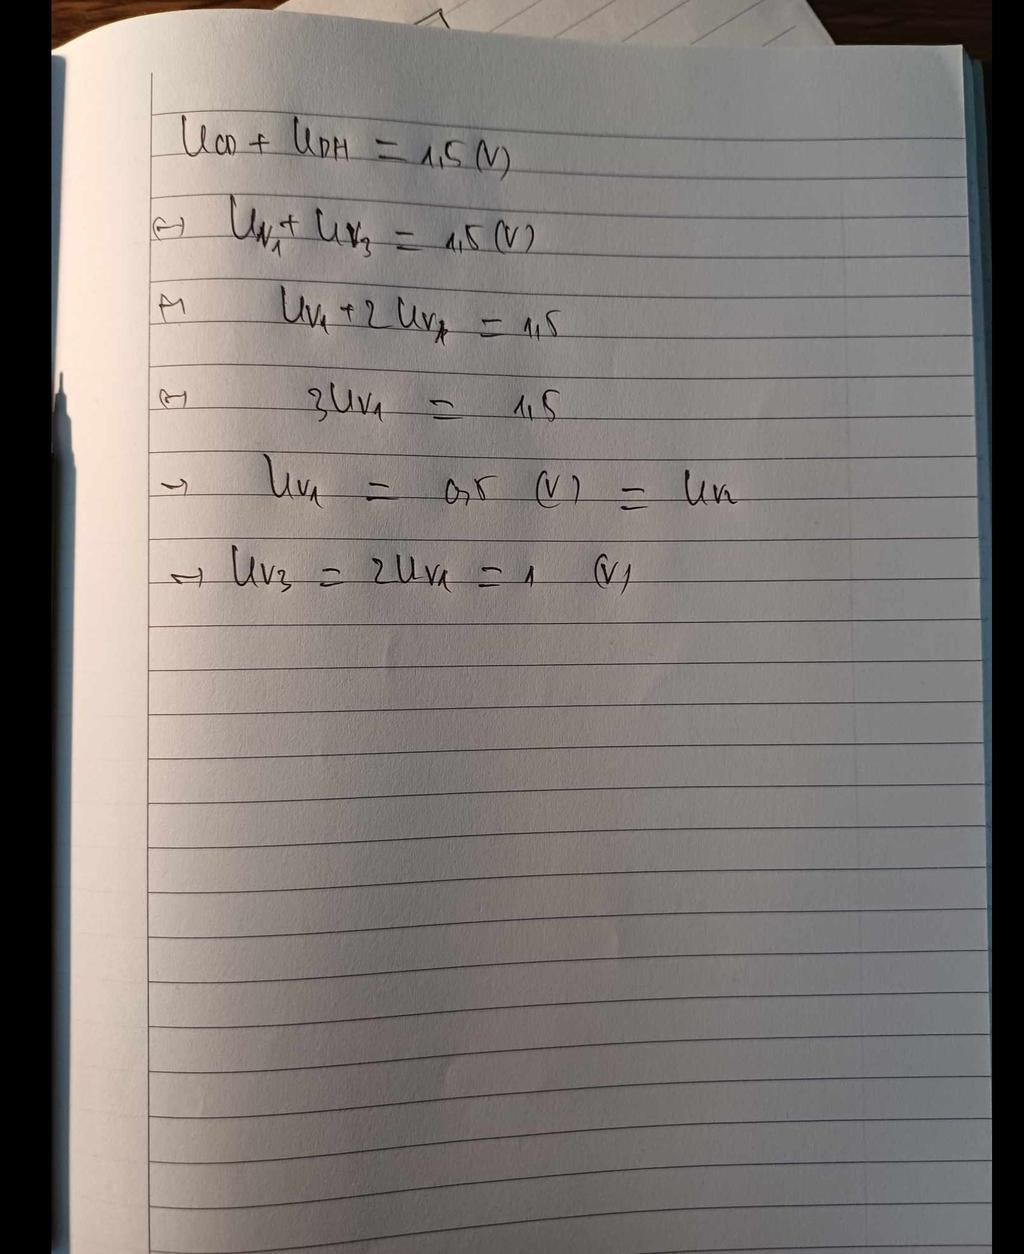 UCD + UDH = 1,5 (V)
↔ UV1 + UV3 = 1,5 (V)
↔ UV1 + 2 UV1 = 1,5
↔ 3UV1 = 1,5
→ UV1 = 0,5 (V) = UV2
→ UV3 = 2UV1 = 1 (V)